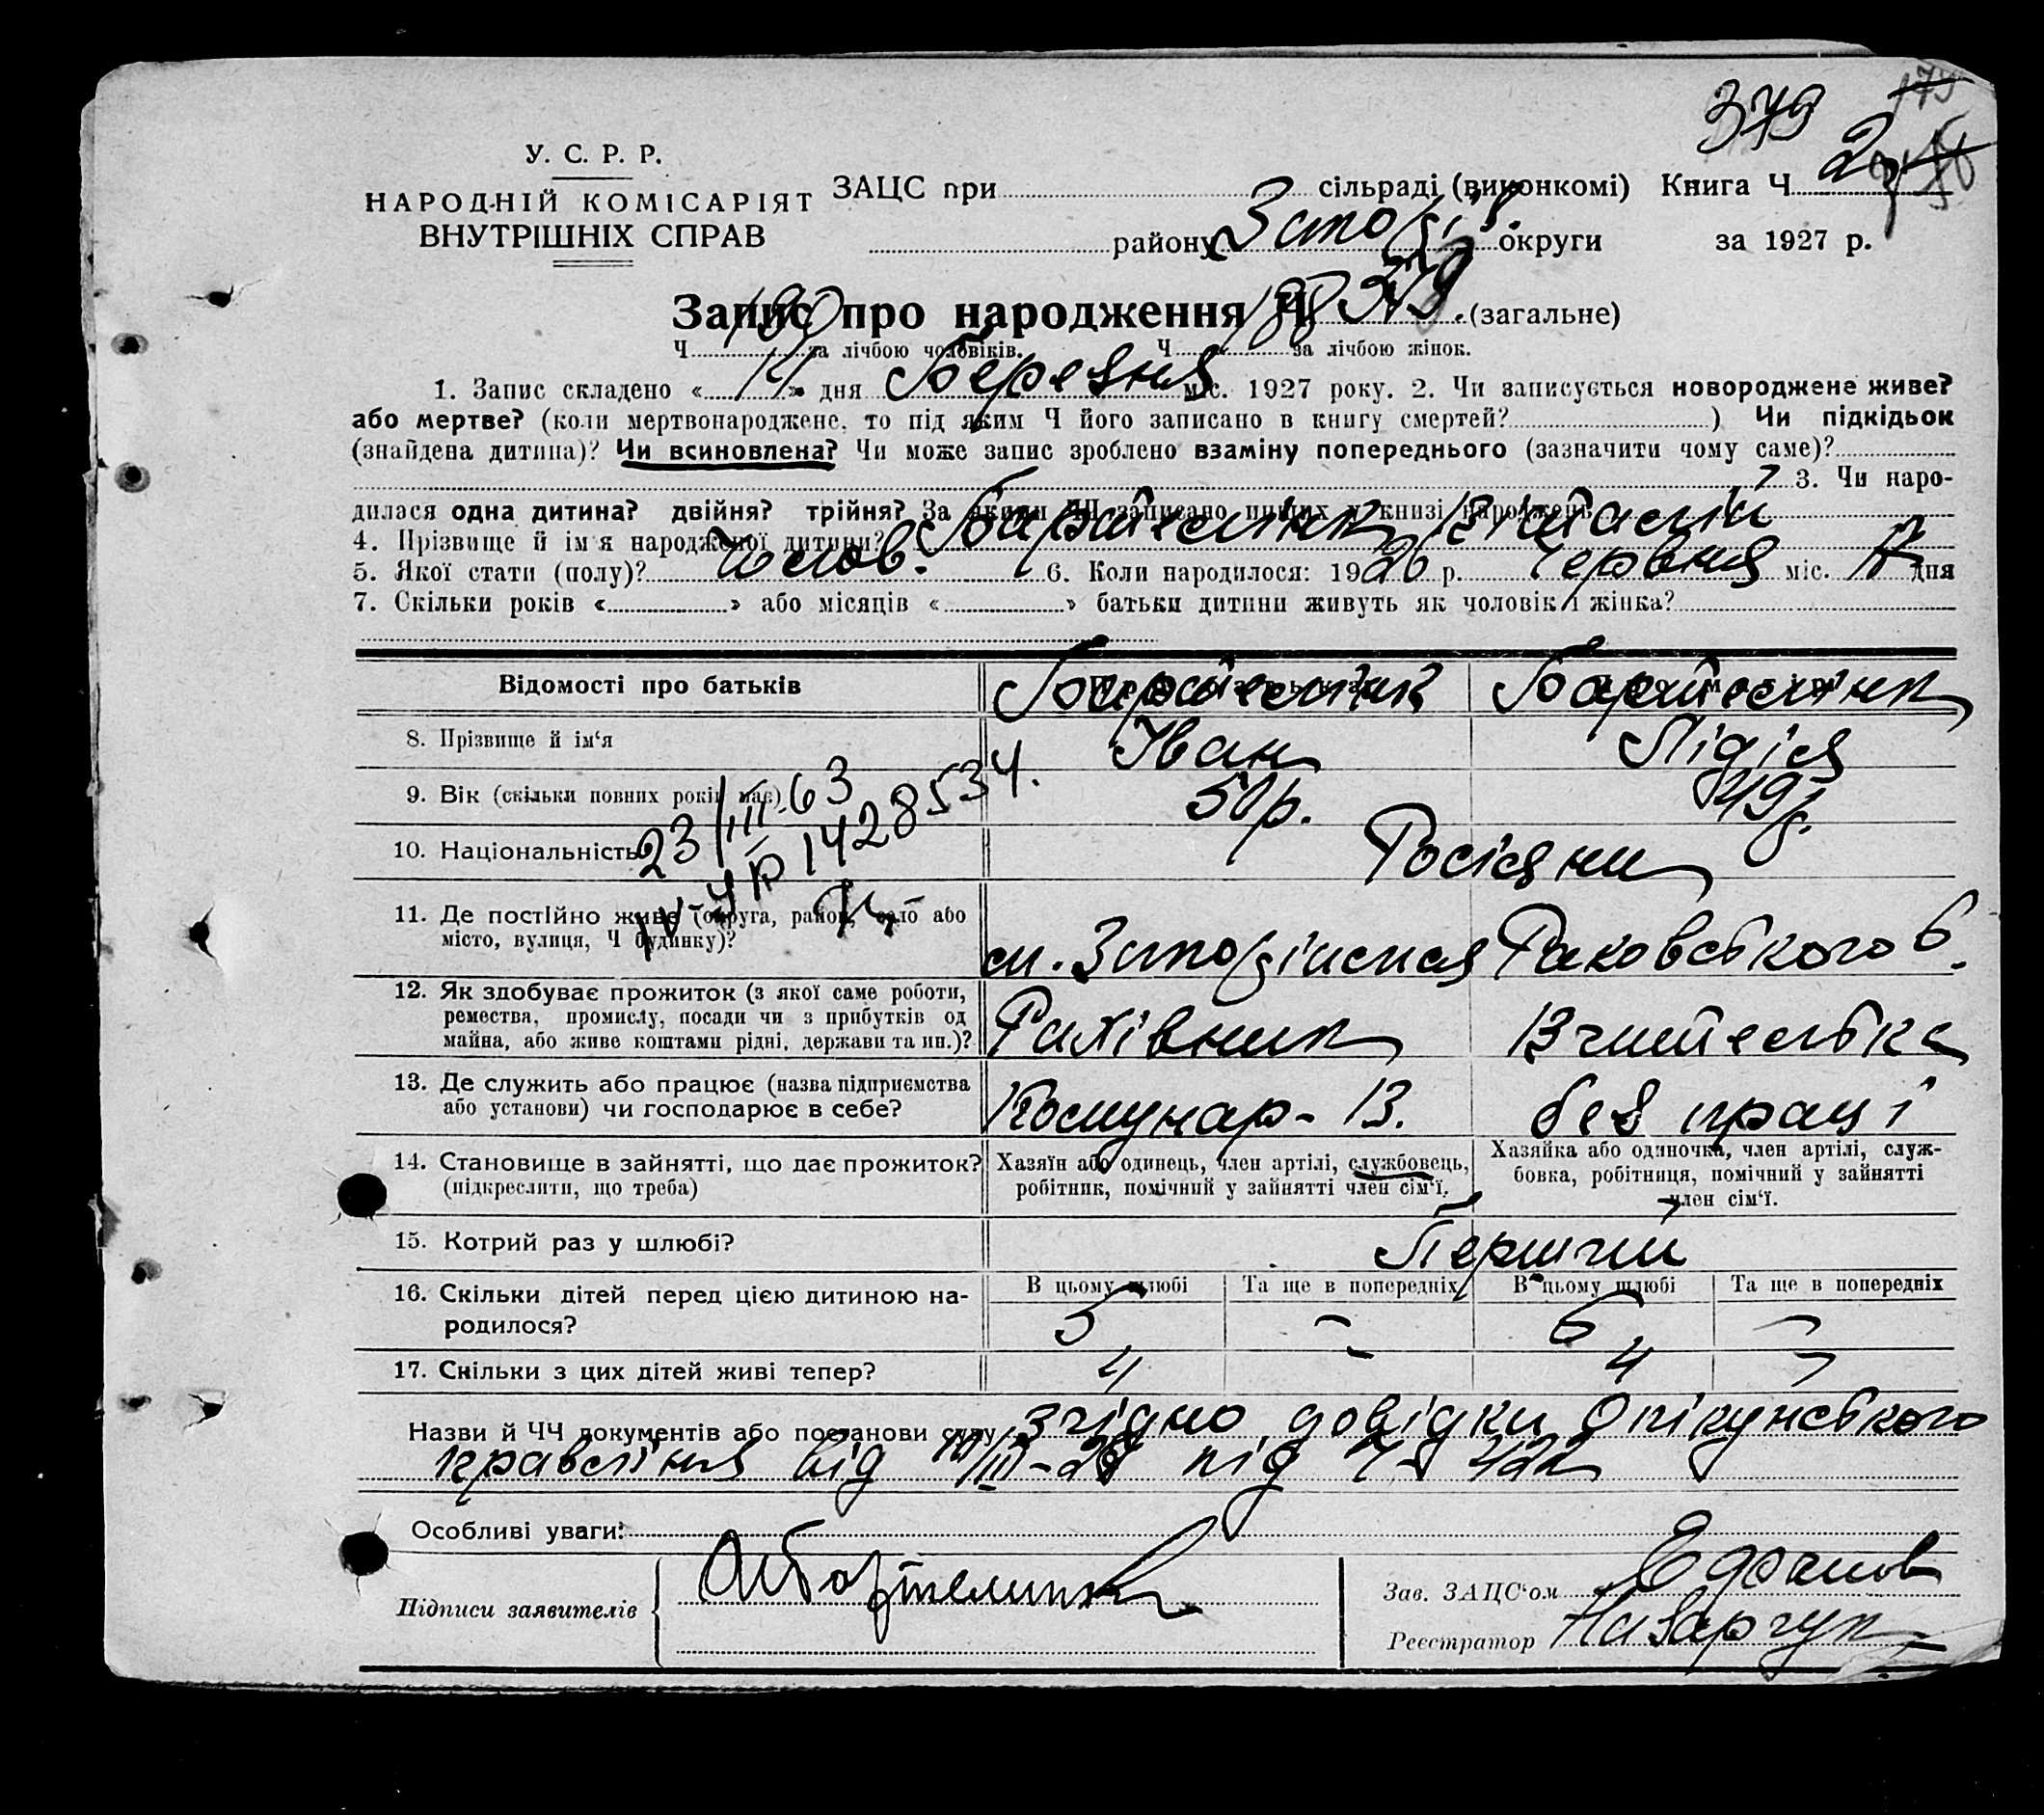 379
У. С. Р. Р.
НАРОДНІЙ КОМІСАРІЯТ
ВНУТРІШНІХ СПРАВ
ЗАЦС при сільраді (виконкомі) Книга Ч 2
району Запоріз. округи за 1927 р.
Запис про народження Ч 379. (загальне)
Ч 190 за лічбою чоловіків. Ч 188 за лічбою жінок.
1. Запис складено « 14 » дня Березня міс. 1927 року. 2. Чи записується новороджене живе?
або мертве? (коли мертвонароджене, то під яким Ч його записано в книгу смертей? ) Чи підкідьок
(знайдена дитина)? Чи всиновлена? Чи може запис зроблено взаміну попереднього (зазначити чому саме)?
3. Чи наро-
дилася одна дитина? двійня? трійня? За якими ЧЧ записано инших у книзі народжень
4. Прізвище й ім'я народженої дитини? Бартельник Віталій
5. Якої стати (полу)? Чолов. 6. Коли народилося: 1926 р. Червня міс. дня
7. Скільки років « » або місяців « » батьки дитини живуть як чоловік і жінка?
Відомості про батьків
Бартельник Бартельник
8. Прізвище й ім'я Іван Лідія
9. Вік (скільки повних років має) 50р. 49р.
23/III-63
IV-УР 1428534.
10. Національність Росіяни
11. Де постійно живе (округа, район, село або
місто, вулиця, Ч будинку)?
м. Запоріжжя Раковського 6.
12. Як здобуває прожиток (з якої саме роботи,
ремества, промислу, посади чи з прибутків од
майна, або живе коштами рідні, держави та ин.)?
Рахівник Вчителька
13. Де служить або працює (назва підприємства
або установи) чи господарює в себе?
Комунар-В. без праці
14. Становище в зайнятті, що дає прожиток?
(підкреслити, що треба)
Хазяїн або одинець, член артілі, службовець,
робітник, помічний у зайнятті член сім'ї.
Хазяйка або одиночка, член артілі, служ-
бовка, робітниця, помічний у зайнятті
член сім'ї.
15. Котрий раз у шлюбі? Перший
16. Скільки дітей перед цією дитиною на-
родилося?
В цьому шлюбі Та ще в попередніх В цьому шлюбі Та ще в попередніх
5 - 6 -
17. Скільки з цих дітей живі тепер? 4 - 4 -
Назви й ЧЧ документів або постанови суду Згідно довідки Опікунського
правління від 14/III-27 під Ч 422
Особливі уваги:
Підписи заявителів
Зав. ЗАЦС'ом
Реєстратор Назарчук